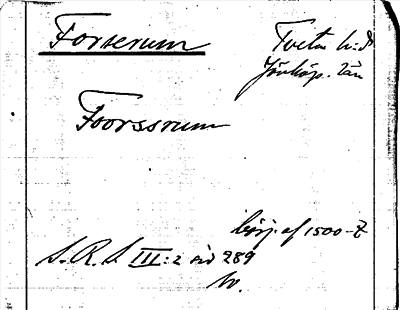 Forserum
Tveta h:d
Jönköp. län
Foorssrum
börj. af 1500-t
S.R.S III:2 sid 289